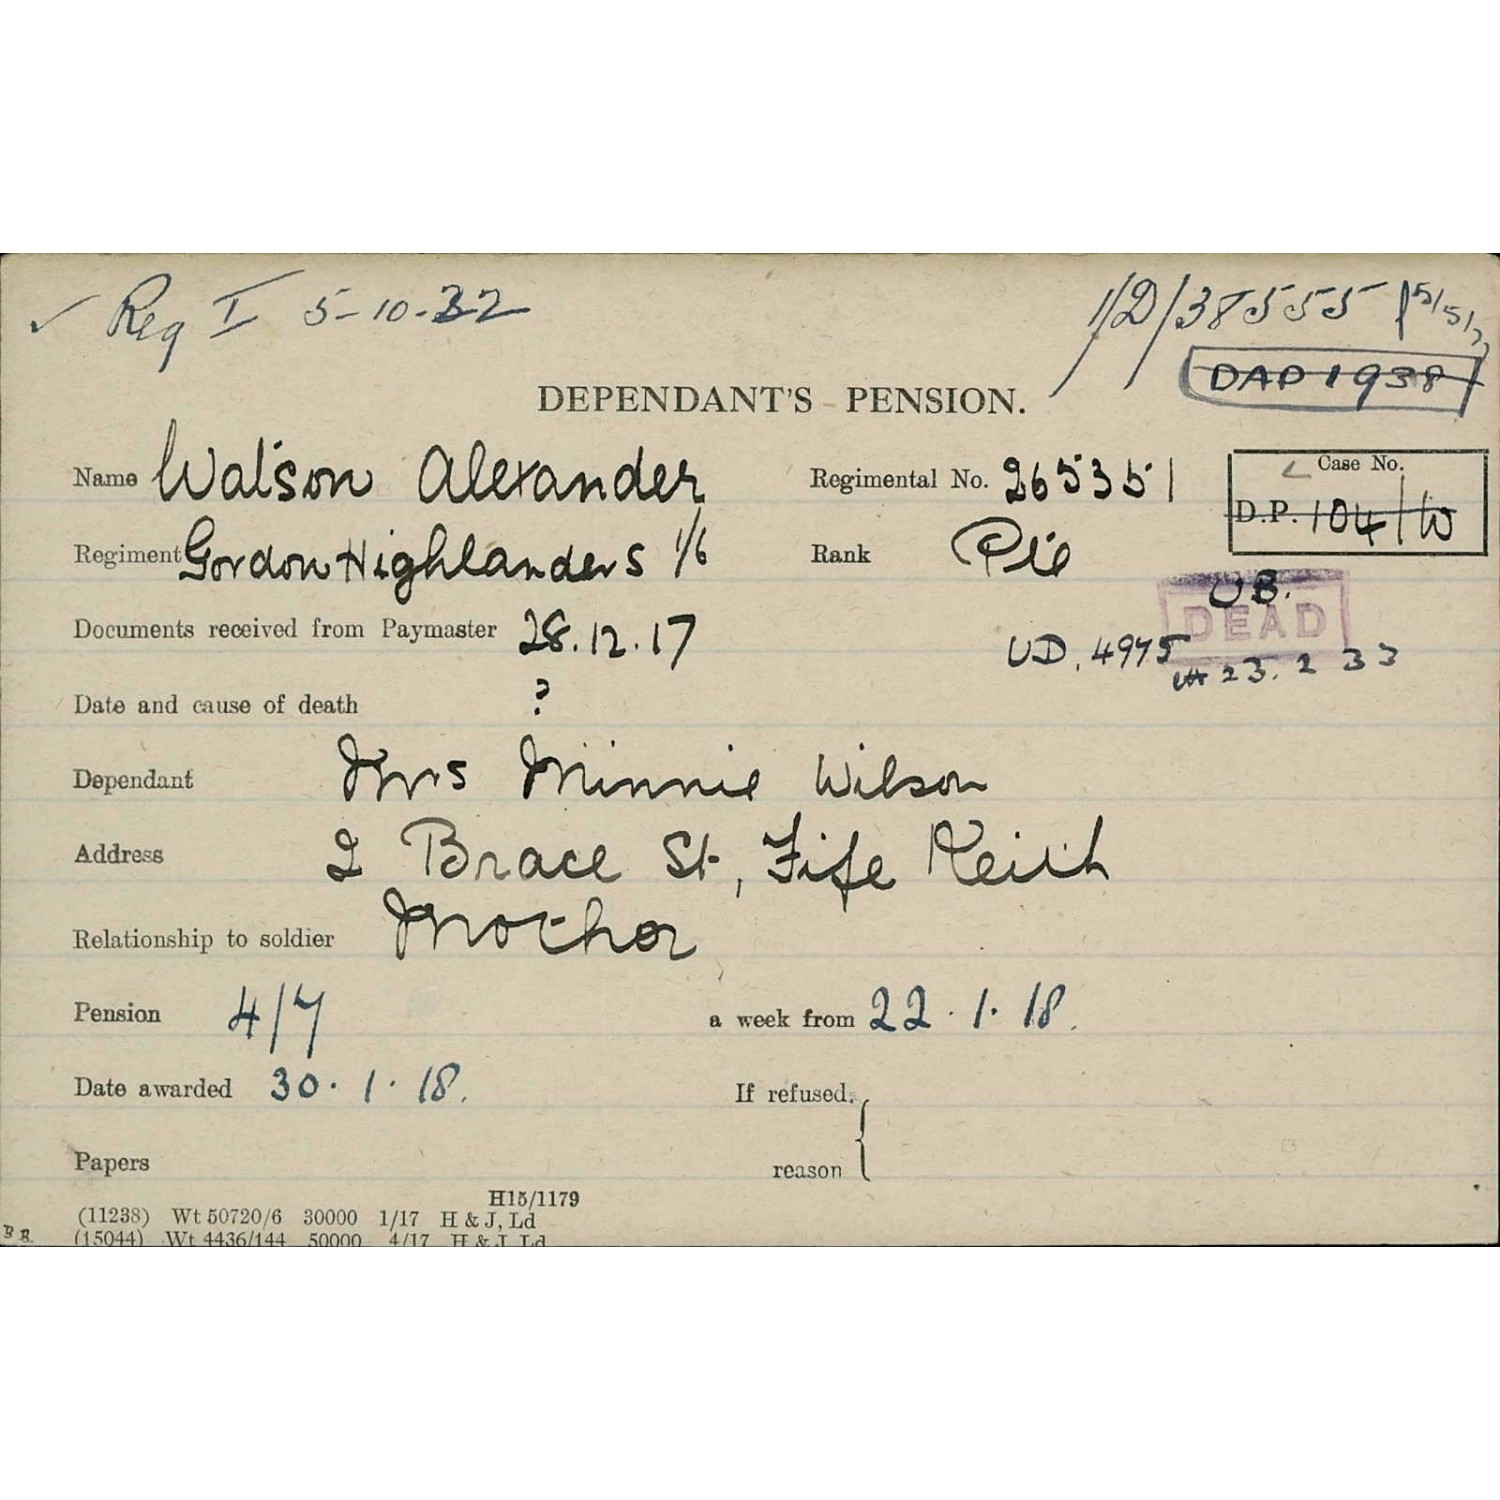 ✓ Reg I 5-10-32
1/D/38555
DAP 1938
DEPENDANT'S PENSION.
Name Watson Alexander Regimental No. 265351 Case No.
D.P. 104/W
Regiment Gordon Highlanders 1/6 Rank Pte
UB.
DEAD
Documents received from Paymaster 28.12.17 UD. 4975
23. 2 33
Date and cause of death ?
Dependant Mrs Minnie Wilson
Address 2 Brace St, Fife Keith
Relationship to soldier Mother
Pension 4/7 a week from 22.1.18.
Date awarded 30.1.18. If refused,
Papers reason
H15/1179
(11238) Wt 50720/6 30000 1/17 H & J, Ld
(15044) Wt 4436/144 50000 4/17 H & J Ld